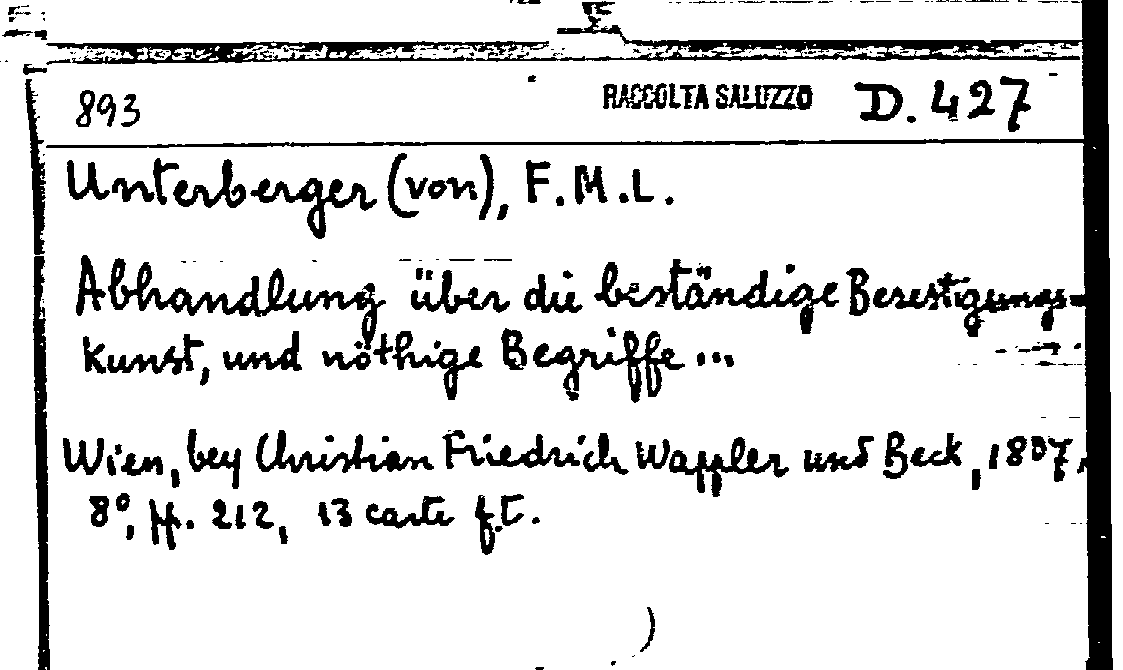 893 RACCOLTA SALUZZO D. 427
Unterberger (von), F.M.L.
Abhandlung über die beständige Besestigungs=
kunst, und nöthige Begriffe ...
Wien, bey Christian Friedrich Wappler und Beck, 1807,
8°, pp. 212, 13 carte f.t.